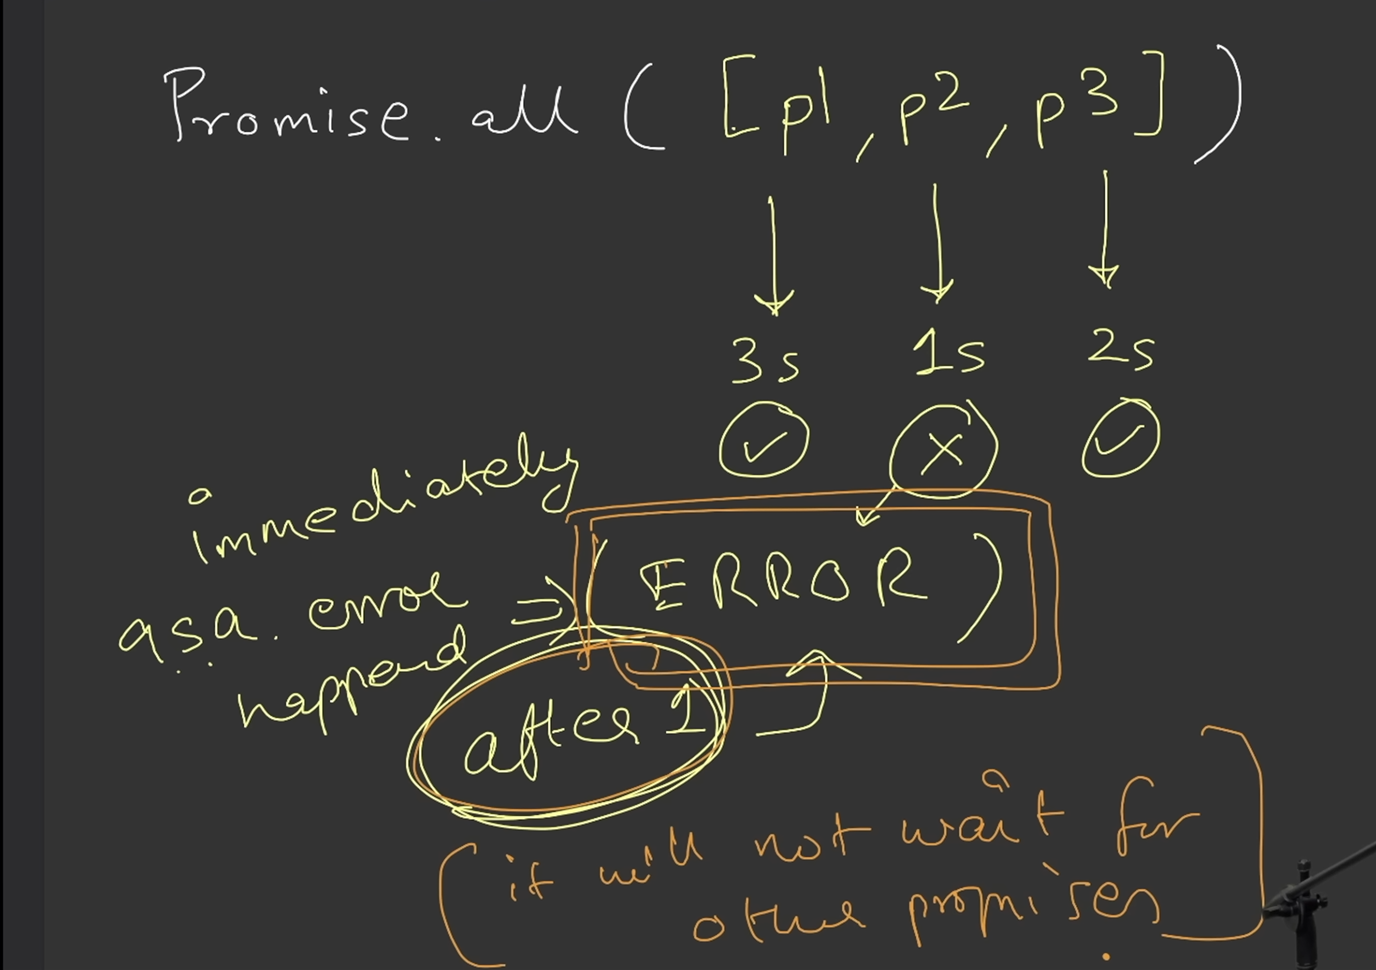 Promise.all ( [p1, p2, p3] )
3s 1s 2s
immediately
a.s.a. error
happened
=> ( ERROR )
after 1
( it will not wait for
other promises )